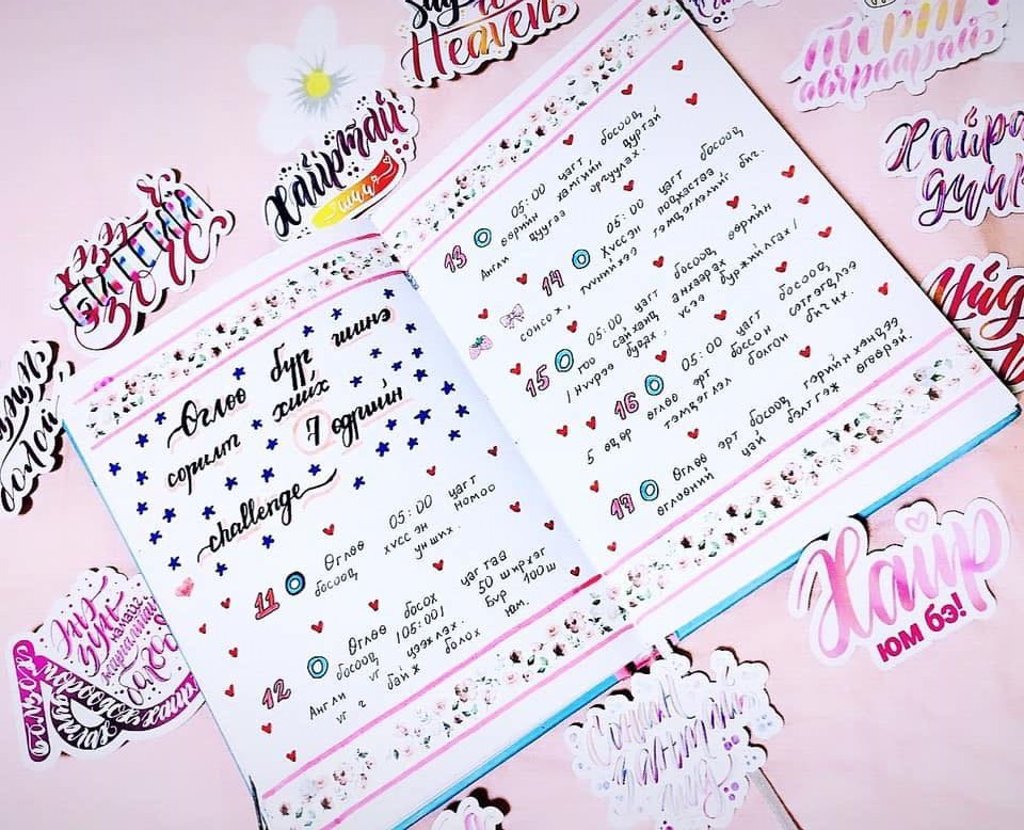 Heaven
Хайртай
шүү
Хайр
юм бэ!
Өглөө бүр шинэ
сорилт хийх
7 өдрийн
challenge
11 Өглөө 05:00 цагт
босоод хүссэн номоо
унших.
12 Өглөө босох цагтаа
босоод /05:00/ 50 ширхэг
Англи үг цээжлэх. Бүр 100ш
үг ч байж болох юм.
13 05:00 цагт босоод
өөрийн хамгийн дуртай
Англи дуугаа
сонсох,
14 05:00 цагт босоод
Хүссэн подкастаа
тэмдэглэлийг бич.
15 05:00 цагт босоод өөрийн
гоо сайханд анхаарах
/Нүүрээ будах, үсээ буржийлгах/
16 05:00 цагт босоод
өглөө эрт боссон сэтгэгдлээ
5 өдөр тэмдэглэл болгон бичих.
17 Өглөө эрт босоод гэрийнхэндээ
өглөөний цай бэлтгэж өгөөрэй.